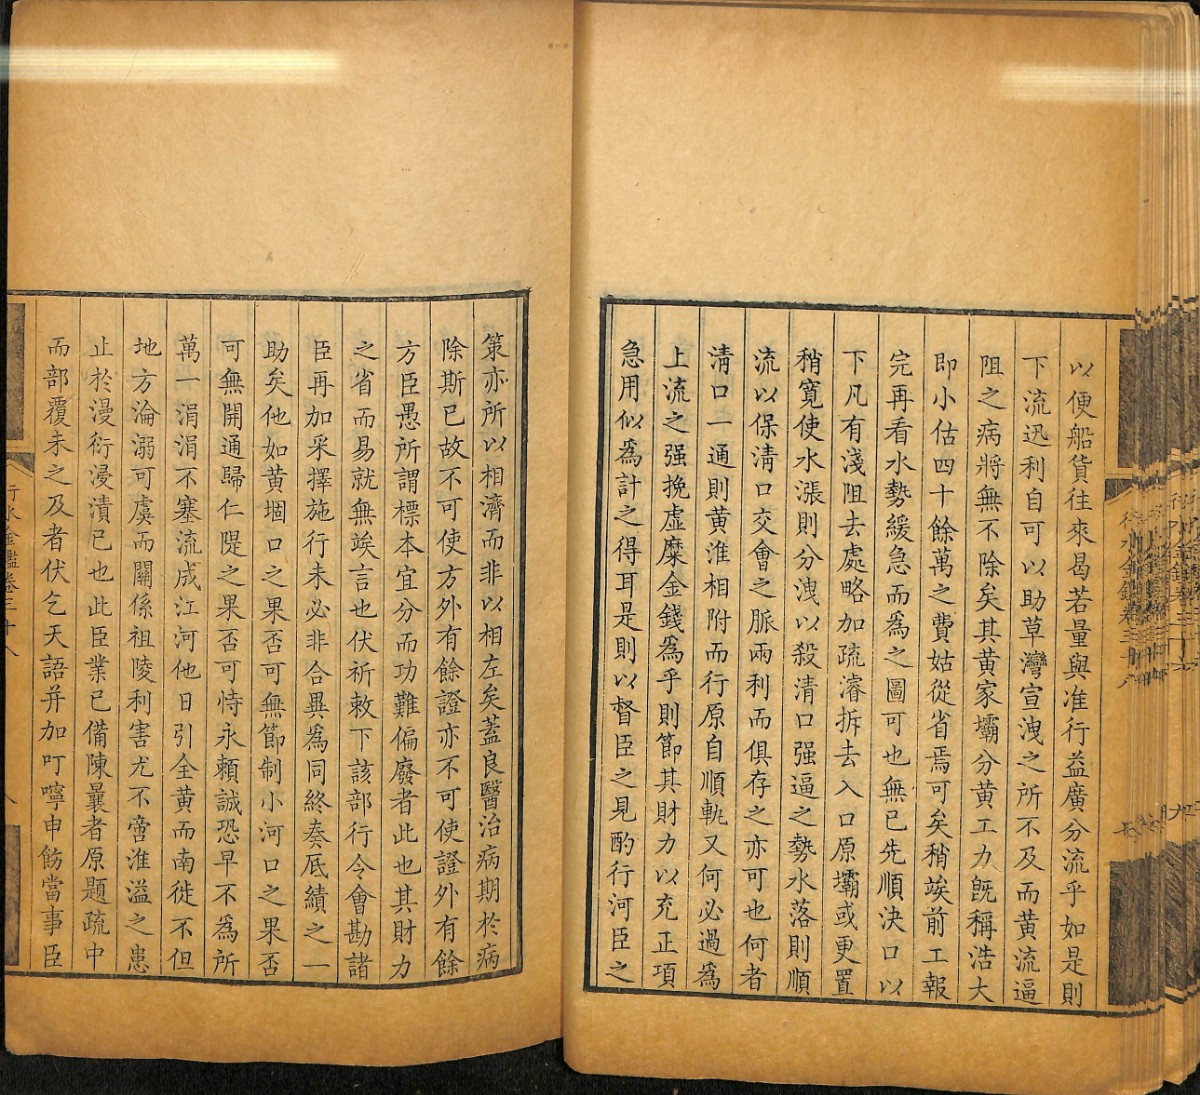 以便船貨往來曷若量與准行益廣分流乎如是則
下流迅利自可以助草灣宣洩之所不及而黄流逼
阻之病將無不除矣其黄家壩分黄工力旣稱浩大
即小估四十餘萬之費姑從省焉可矣稍竢前工報
完再看水勢緩急而爲之圖可也無已先順決口以
下凡有淺阻去處略加疏濬拆去入口原壩或更置
稍寛使水漲則分洩以殺清口强逼之勢水落則順
流以保淸口交會之脈兩利而俱存之亦可也何者
淸口一通則黄淮相附而行原自順軌又何必過爲
上流之强挽虚糜金錢爲乎則節其財力以充正項
急用似爲計之得耳是則以督臣之見酌行河臣之
策亦所以相濟而非以相左矣蓋良醫治病期於病
除斯已故不可使方外有餘證亦不可使證外有餘
方臣愚所謂標本宜分而功難偏廢者此也其財力
之省而易就無竢言也伏祈敕下該部行令會勘諸
臣再加采擇施行未必非合異爲同終奏厎績之一
助矣他如黄堌口之果否可無節制小河口之果否
可無開通歸仁隄之果否可恃永頼誠恐早不爲所
萬一涓涓不塞流成江河他日引全黄而南徙不但
地方淪溺可虞而關係祖陵利害尤不啻淮溢之患
止於漫衍浸漬已也此臣業已備陳曩者原題疏中
而部覆未之及者伏乞天語并加叮嚀申飭當事臣
行水金鑑卷三十八
八